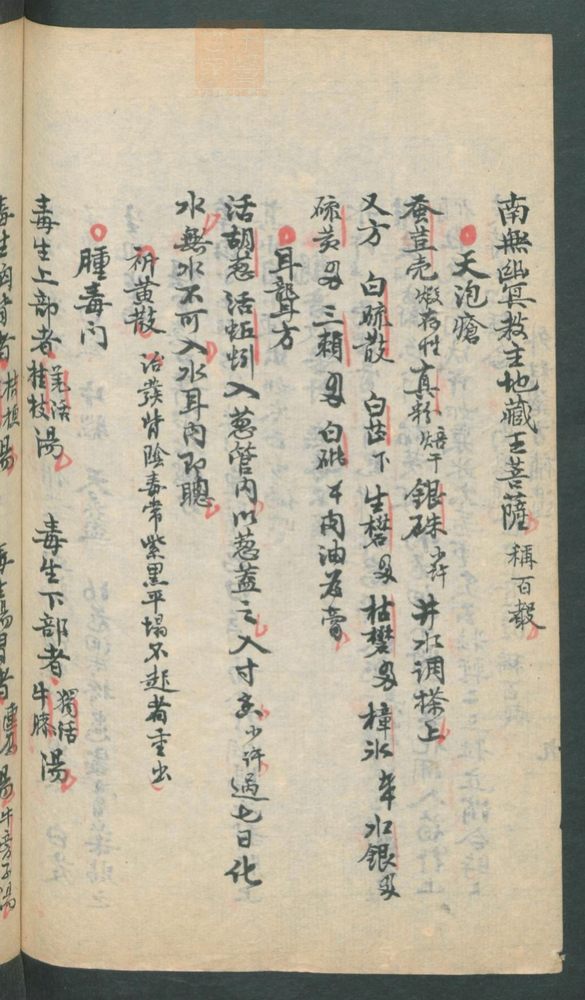 南無幽冥教主地藏王菩薩 稱百聲
天泡瘡
蚕荳壳煅存性真粉焙干銀硃少許 井水调搽上
又方 白疏散 白芷下 生礬 枯礬 樟氷 水銀
硫黄 三賴 白砒 肉油為膏
耳聾方
活胡葱 活蚯蚓 入葱管内以葱蓋之入寸 少許過七日化
水無水不可入水耳内即聰
黄散 治發背陰毒常紫黑平塌不起者重出
腫毒门
毒生上部者 羌活 桂枝 湯 毒生下部者 獨活 牛膝 湯
毒生 者 桔梗湯 毒生腸胃者 湯 牛蒡子湯